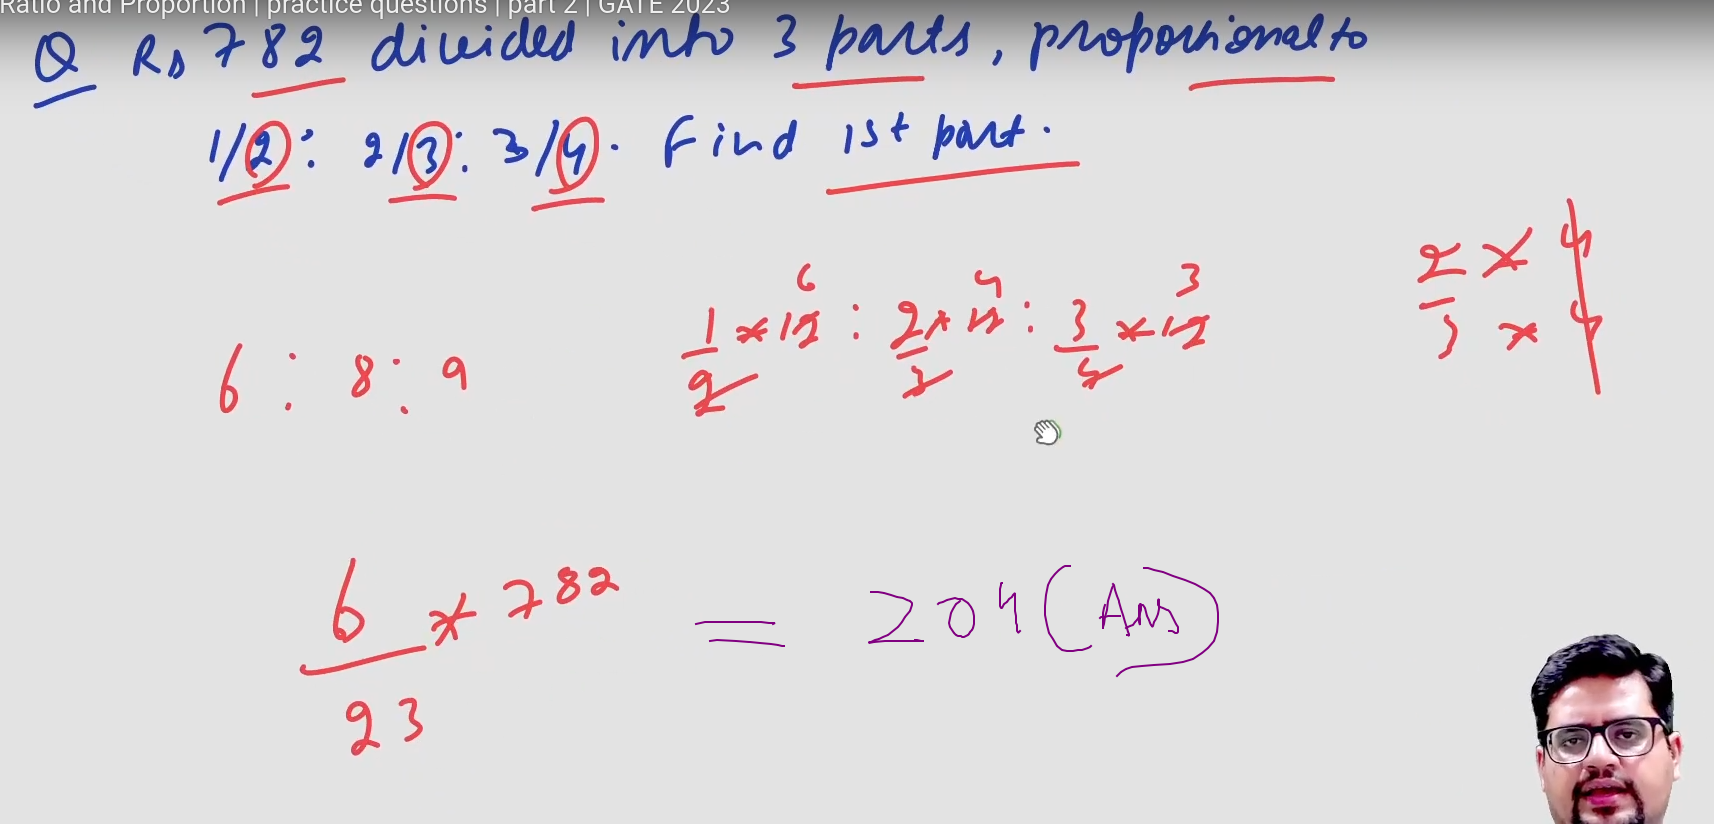 Ratio and Proportion | practice questions | part 2 | GATE 2023
Q Rs 782 divided into 3 parts, proportional to
1/2 : 2/3 : 3/4 . Find 1st part.
2/3 × 4/4
6 4 3
1/2 × 12 : 2/3 × 12 : 3/4 × 12
6 : 8 : 9
6/23 × 782 = 204 (Ans)